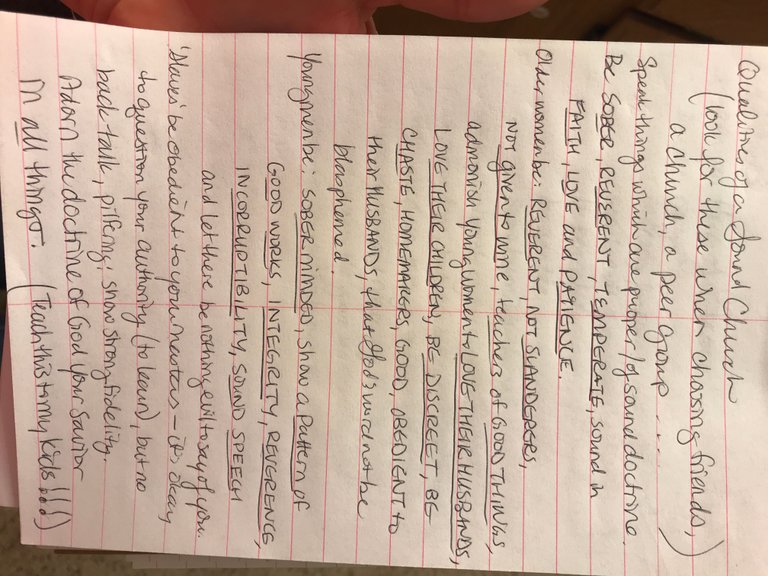 Qualities of a Sound Church
(look for these when choosing friends,
a church, a peer group ....)
Speak things which are proper/of sound doctrine.
Be SOBER, REVERENT, TEMPERATE, sound in
FAITH, LOVE and PATIENCE.
Older women be: REVERENT, not SLANDERERS,
NOT given to wine, teachers of GOOD THINGS,
admonish young women to LOVE THEIR HUSBANDS,
LOVE THEIR CHILDREN, BE DISCREET, BE
CHASTE, HOMEMAKERS, GOOD, OBEDIENT to
their HUSBANDS, that God's word not be
blasphemed.
Young men be: SOBER minded, show a pattern of
GOOD WORKS, INTEGRITY, REVERENCE,
INCORRUPTIBILITY, SOUND SPEECH
and let there be nothing evil to say of you.
'Slaves' be obedient to your masters - it's okay
to question your authority (to learn), but no
back talk, pilfering; show strong fidelity.
Adorn the doctrine of God your Savior
in all things. (Teach this to my kids!!!!)